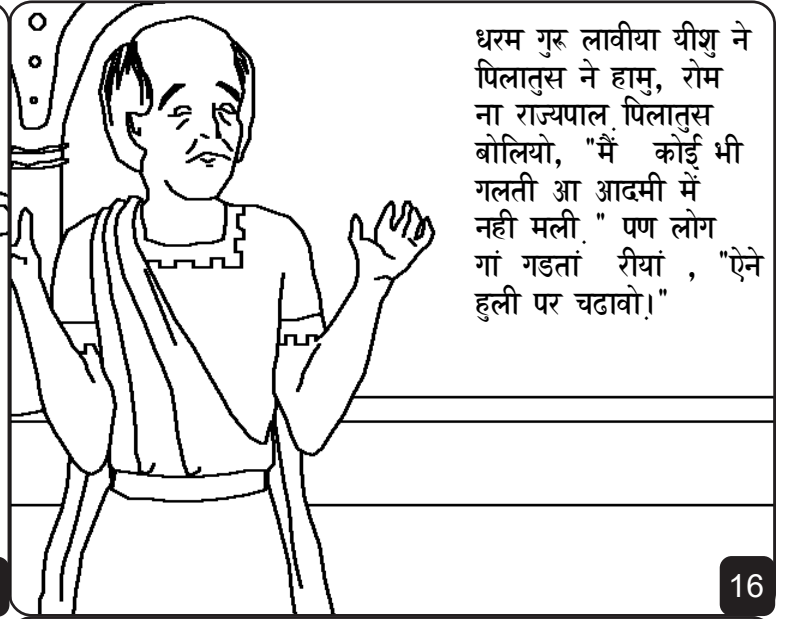 धरम गुरू लावीया यीशु ने
पिलातुस ने हामु, रोम
ना राज्यपाल पिलातुस
बोलियो, "मैं कोई भी
गलती आ आदमी में
नही मली." पण लोग
गां गडतां रीयां , "ऐने
हुली पर चढावो।"
16